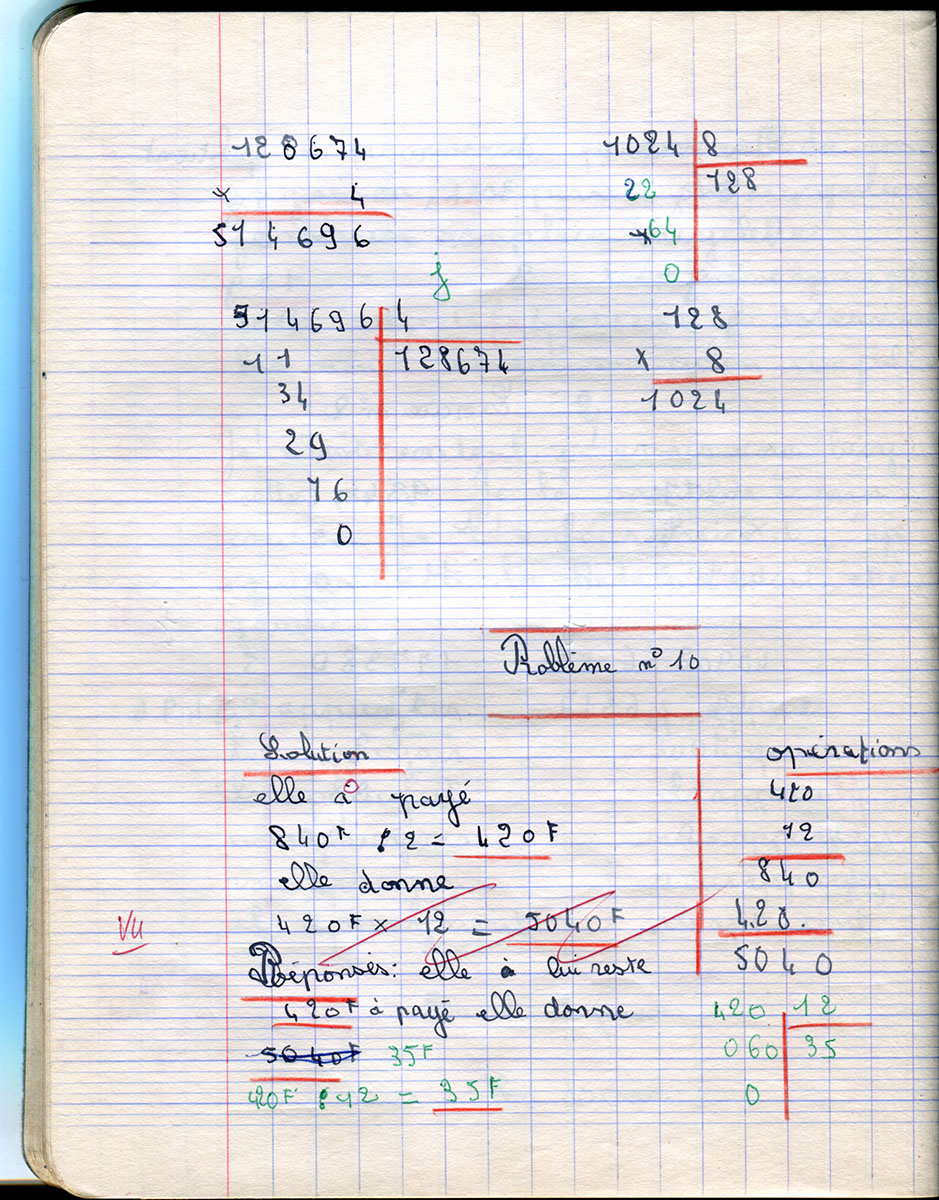 128674
× 4
514696
j
514696 4
11 128674
34
29
16
0
1024 8
22 128
64
0
128
× 8
1024
Problème n° 10
Solution
elle à payé
840F : 2 = 420F
elle donne
420F × 12 = 5040F
Réponses: elle à lui reste
420F à payé elle donne
5040F 35F
420F : 12 = 35F
Vu
opérations
420
12
840
420.
5040
420 12
060 35
0